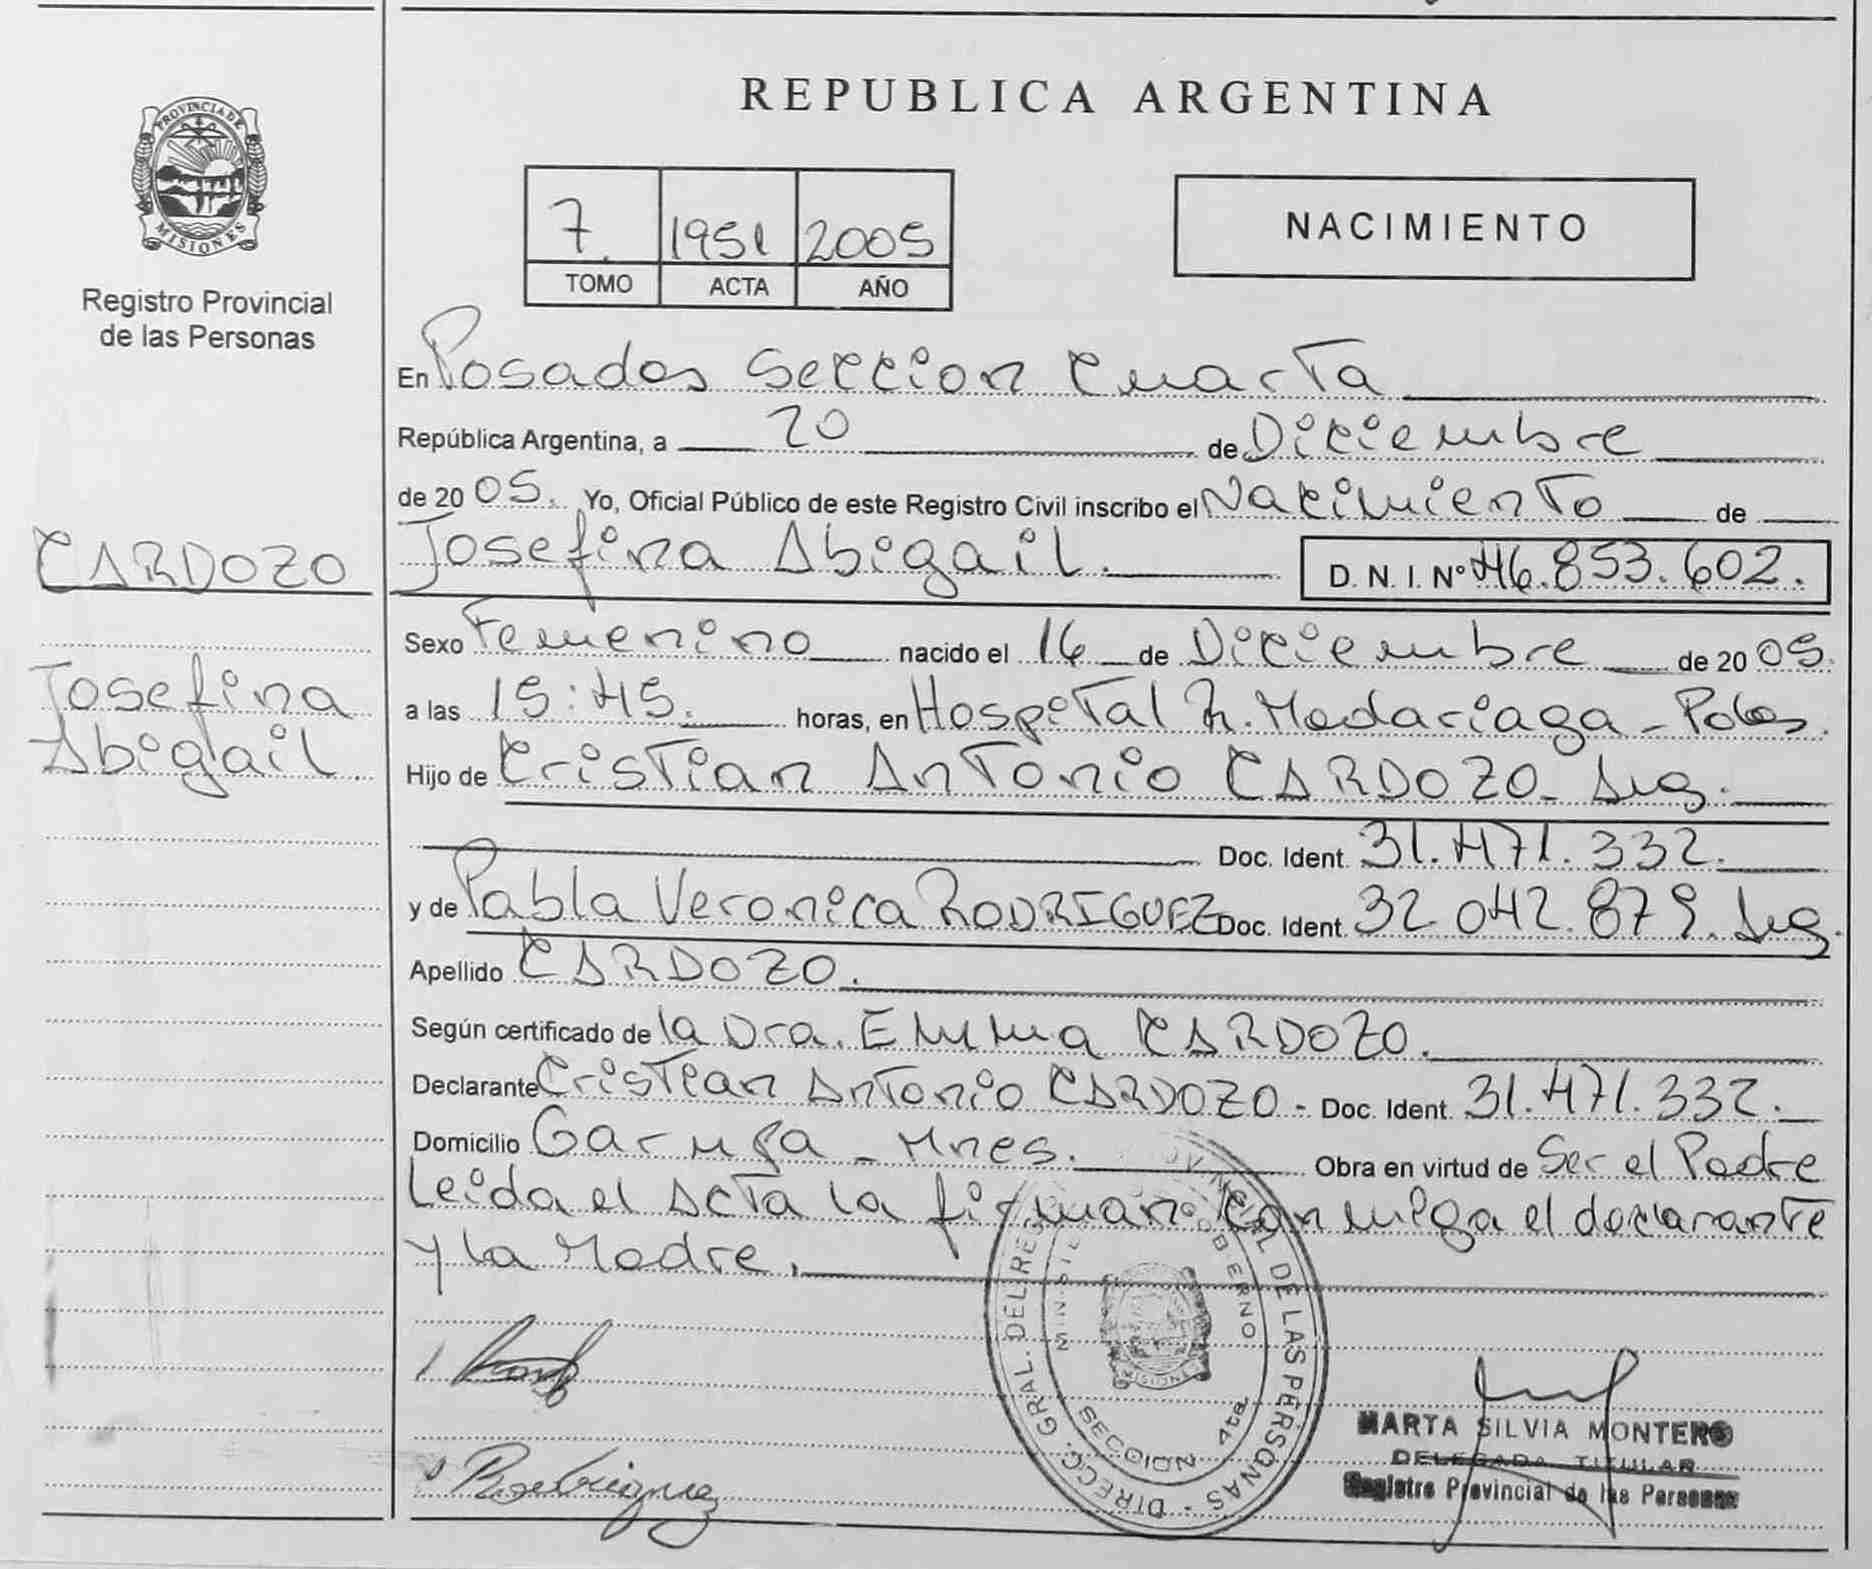 REPUBLICA ARGENTINA
PROVINCIA DE
MISIONES
Registro Provincial
de las Personas
7. 1951 2005
TOMO ACTA AÑO
NACIMIENTO
En Posadas Seccion Cuarta
República Argentina, a 20 de Diciembre
de 20 05. Yo, Oficial Público de este Registro Civil inscribo el Nacimiento de
CARDOZO
Josefina Abigail. D. N. I. Nº 46.853.602.
Sexo Femenino nacido el 16 de Diciembre de 20 05.
Josefina
Abigail.
a las 15:45. horas, en Hospital R. Madariaga - Pdas.
Hijo de Cristian Antonio CARDOZO - Arg.
Doc. Ident. 31.471.332.
y de Pabla Veronica RODRIGUEZ Doc. Ident. 32.042.879. Arg.
Apellido CARDOZO.
Según certificado de la Dra. Emma CARDOZO.
Declarante Cristian Antonio CARDOZO - Doc. Ident. 31.471.332.
Domicilio Garupa - Mnes. Obra en virtud de Ser el Padre
Leida el Acta la firman conmigo el declarante
y la Madre.
DIRECC. GRAL. DEL REG. PROVINCIAL DE LAS PERSONAS
SECCION 4ta.
MISIONES
Rodriguez
MARTA SILVIA MONTERO
DELEGADA TITULAR
Registro Provincial de las Personas